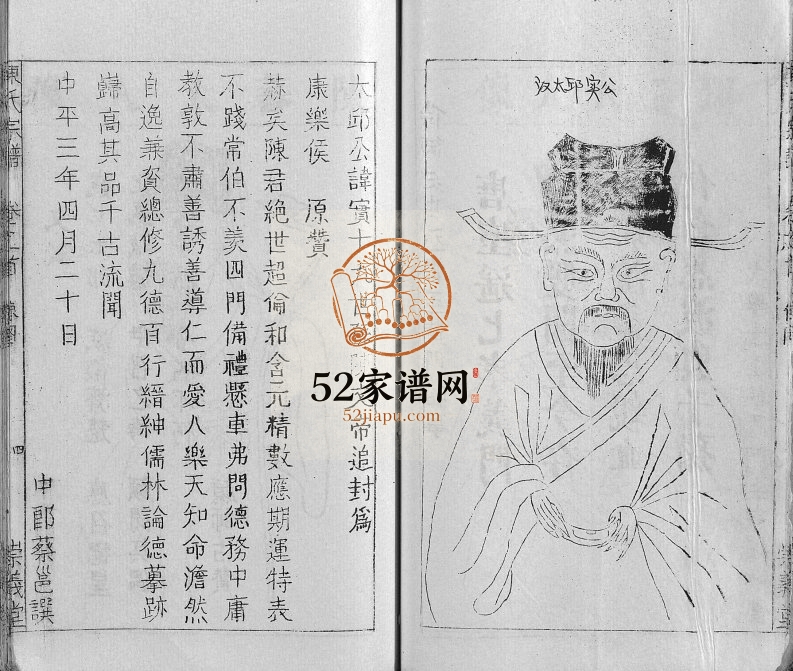 公实邱太汉
太邱公諱實十
帝追封爲
康樂侯 源贊
赫矣陳君絶世超倫和含元精數應期運特表
不踐常伯不羡四門備禮懸車弗問德務中庸
教敦不肅善誘善導仁而愛人樂天知命澹然
自逸兼資總修九德百行縉紳儒林論德摹跡
歸高其品千古流聞
中平三年四月二十日
中郎蔡邕譔
陳氏宗譜 卷之首 像圖 四 崇義堂
崇義堂
52家谱网
52jiapu.com